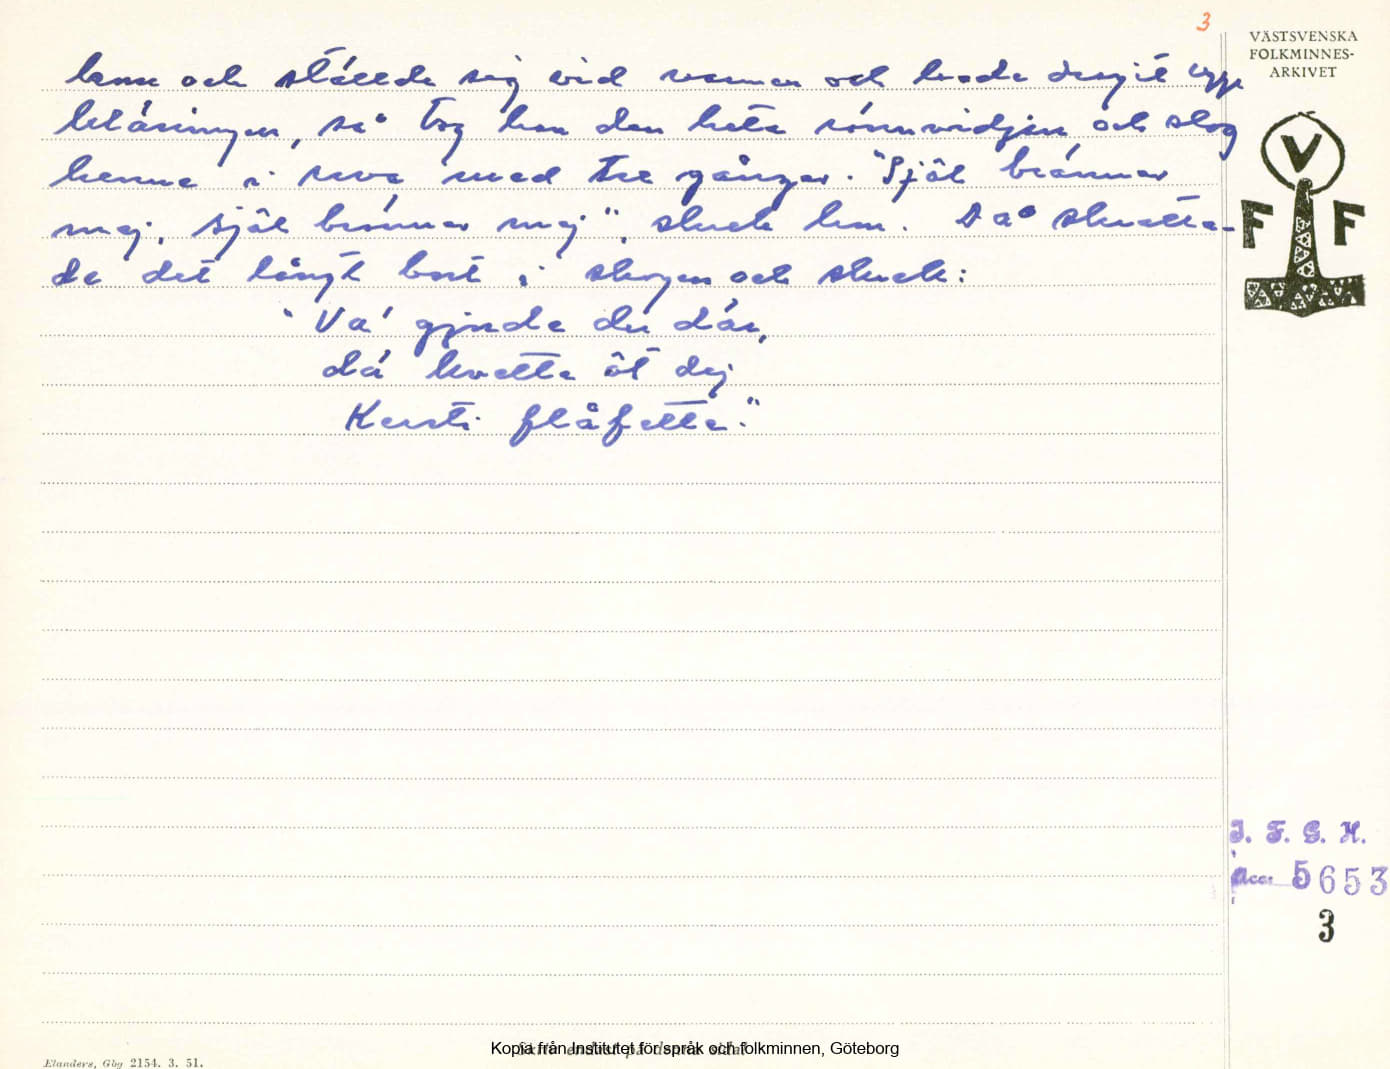 3
VÄSTSVENSKA
FOLKMINNES-
ARKIVET
V
F F
kom och ställde sig vid varmen och hade dragit upp
blåsningen, så tog han den heta rönnvidjan och slog
henne i röva med tre gånger. "Själ bränner
maj, själ bränner maj", skrek hon. Då skratta-
de det långt bort i skogen och skrek:
"Va' gjorde du där,
dä kvette åt dej
Kersti flåfetta."
I. F. G. H.
Acc. 5653
3
Elanders, Gbg 2154. 3. 51.
Kopia från Institutet för språk och folkminnen, Göteborg